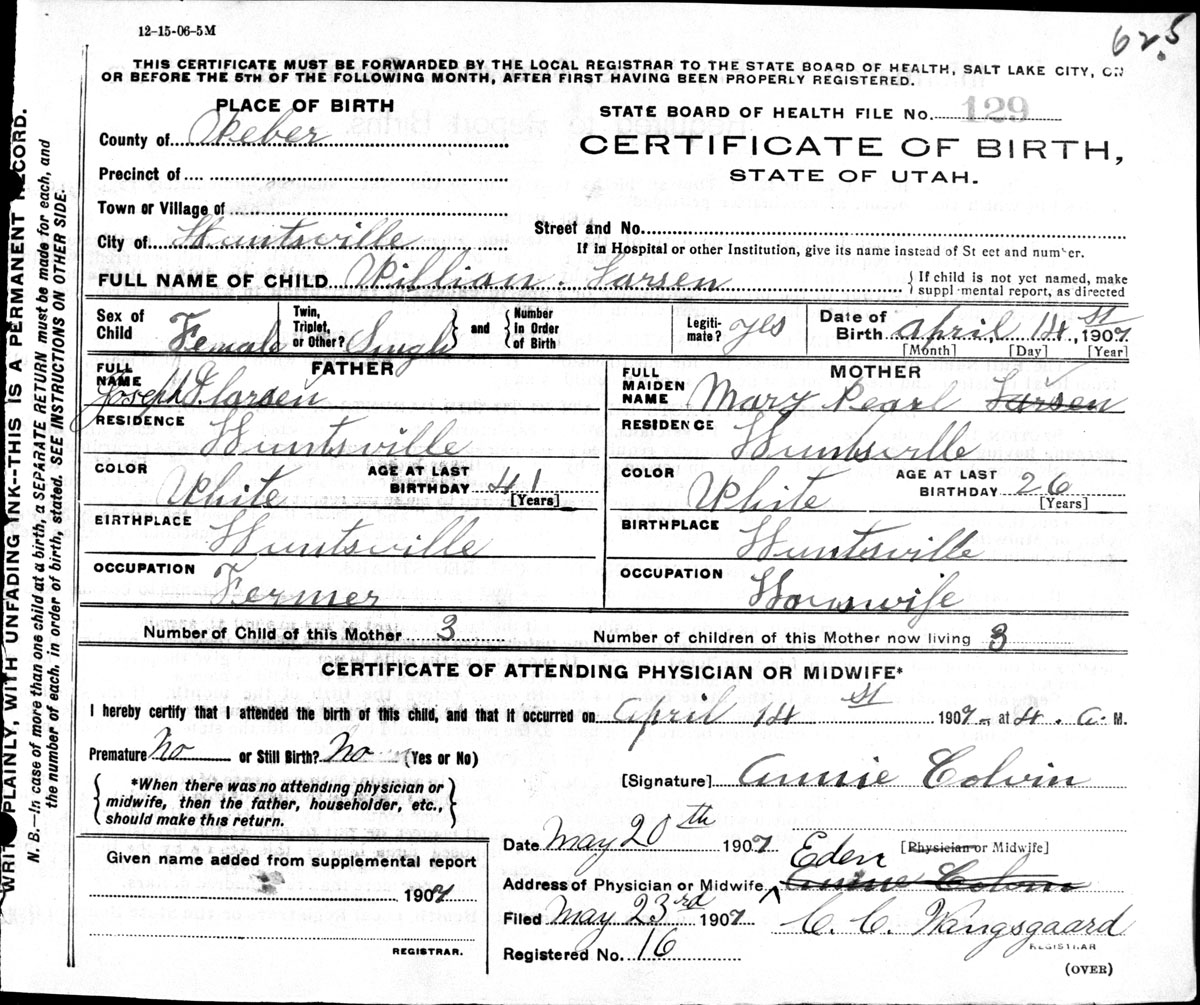 12-15-06-5M
62.5
THIS CERTIFICATE MUST BE FORWARDED BY THE LOCAL REGISTRAR TO THE STATE BOARD OF HEALTH, SALT LAKE CITY, ON
OR BEFORE THE 5TH OF THE FOLLOWING MONTH, AFTER FIRST HAVING BEEN PROPERLY REGISTERED.
PLACE OF BIRTH
STATE BOARD OF HEALTH FILE No. 129
County of Weber
CERTIFICATE OF BIRTH,
STATE OF UTAH.
Precinct of
Town or Village of
Street and No.
City of Huntsville
If in Hospital or other Institution, give its name instead of St eet and number.
FULL NAME OF CHILD Willian . Larsen
{ If child is not yet named, make
suppl mental report, as directed
Sex of Child Female
Twin, Triplet, or Other? Singl
and
Number In Order of Birth
Legiti-mate? yes
Date of Birth April, 14 st, 1907
[Month] [Day] [Year]
FATHER
MOTHER
FULL NAME Joseph Larsen
FULL MAIDEN NAME Mary Pearl Larsen
RESIDENCE Huntsville
RESIDENCE Huntsville
COLOR White AGE AT LAST BIRTHDAY 41 [Years]
COLOR White AGE AT LAST BIRTHDAY 26 [Years]
BIRTHPLACE Huntsville
BIRTHPLACE Huntsville
OCCUPATION Fermer
OCCUPATION Hourswife
Number of Child of this Mother 3
Number of children of this Mother now living 3
CERTIFICATE OF ATTENDING PHYSICIAN OR MIDWIFE*
I hereby certify that I attended the birth of this child, and that it occurred on April 14 st 1907 at 4. a M.
Premature No or Still Birth? No (Yes or No)
{ *When there was no attending physician or
midwife, then the father, householder, etc.,
should make this return. }
[Signature] Annie Colvin
Date May 20th 1907
[Physician or Midwife]
Given name added from supplemental report
1907
REGISTRAR.
Eden
Address of Physician or Midwife Annie Colvin
Filed May 23rd 1907 C. C. Wangsgaard
REGISTRAR
Registered No. 16
(OVER)
WRIT PLAINLY, WITH UNFADING INK--THIS IS A PERMANENT RECORD.
N. B.—In case of more than one child at a birth, a SEPARATE RETURN must be made for each, and
the number of each, in order of birth, stated. SEE INSTRUCTIONS ON OTHER SIDE.